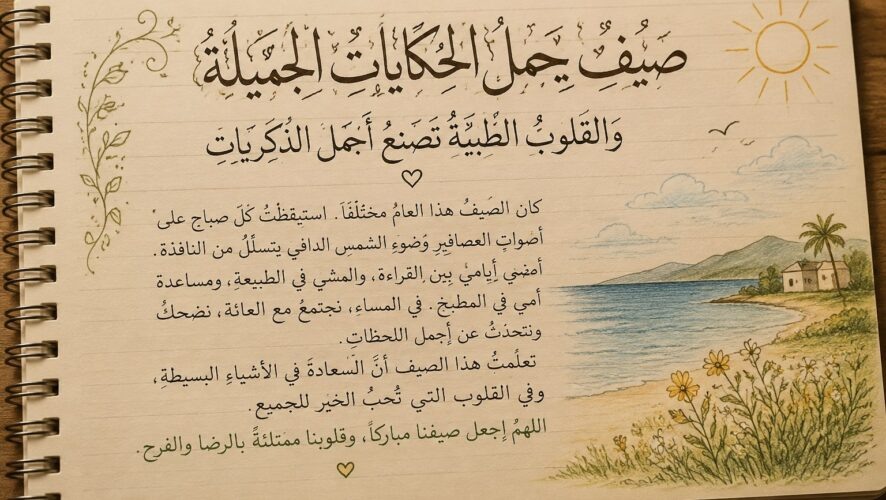 صَيْفٌ حَملَ الحِكَايَاتِ الجَمِيلَةُ
وَالقَلوبُ الطَّيِبَةُ تَصَنعُ أَجمَل الذكَرِيَاتِ
كان الصَيفُ هذا العامُ مختْلَفَاً. استيقظْتُ كلَ صباح على
أصواتِ العصافيرِ وَضوءِ الشمسِ الدافي يتسلّلُ من النافذة.
أمضي أيامي بين القراءة، والمشي في الطبيعةِ، ومساعدة
أمي في المطبخ. في المساءِ، نجتمعُ مع العائة، نضحكُ
ونتحدَثُ عن إجمل اللحظاتِ.
تعلّمتُ هذا الصيف أنَّ السعادةَ في الأشياءِ البسيطةِ،
وفي القلوب التي تُحبُ الخير للجميع.
اللهمُ إجعل صيفنا مباركاً، وقلوبنا ممتلئةً بالرضا والفرح.